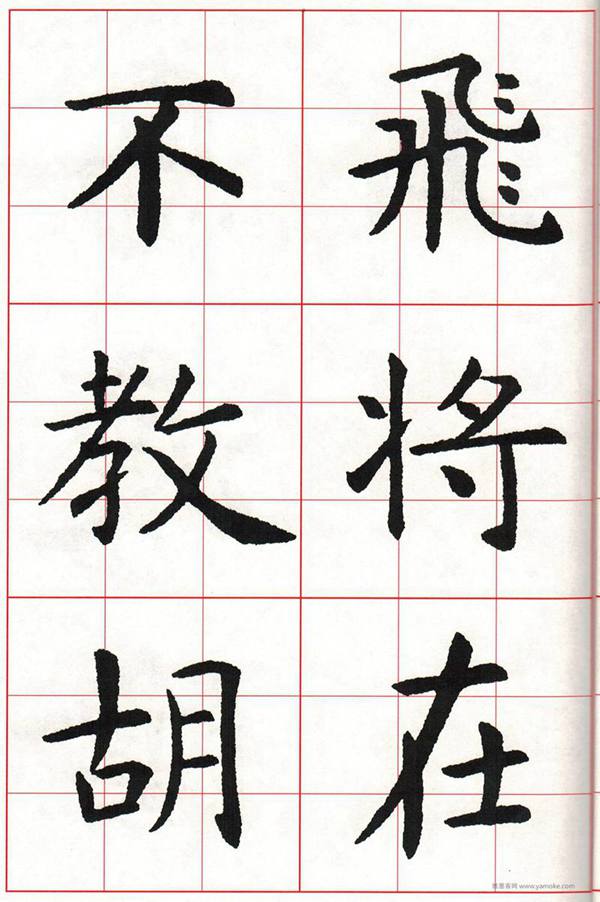 飛将在
不教胡
悠墨客网 www.yamoke.com